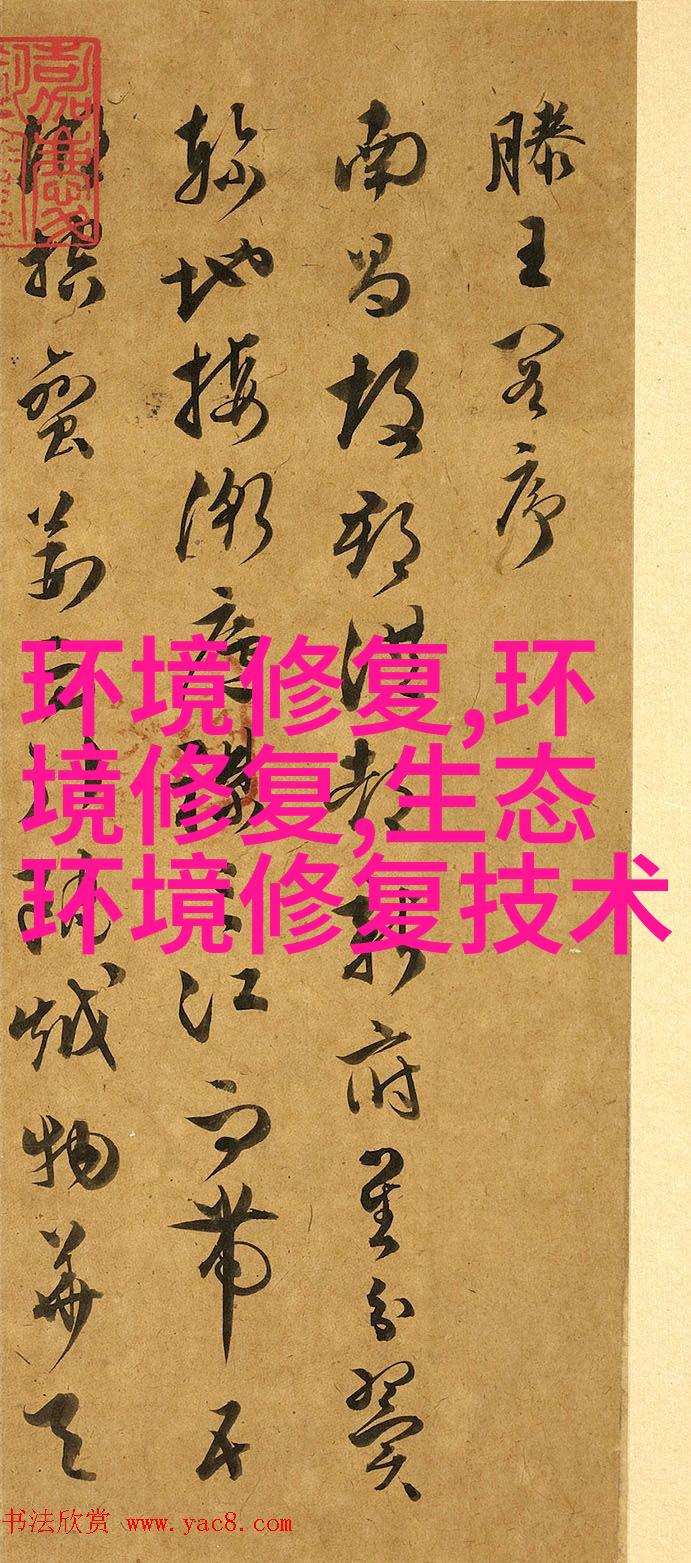 滕王阁序
南昌故郡洪都新府星分翼
轸地接衡庐襟三江而带五
湖控蛮荆而引瓯越物华天
环境修复,环
境修复,生态
环境修复技术
书法欣赏 www.yac8.com